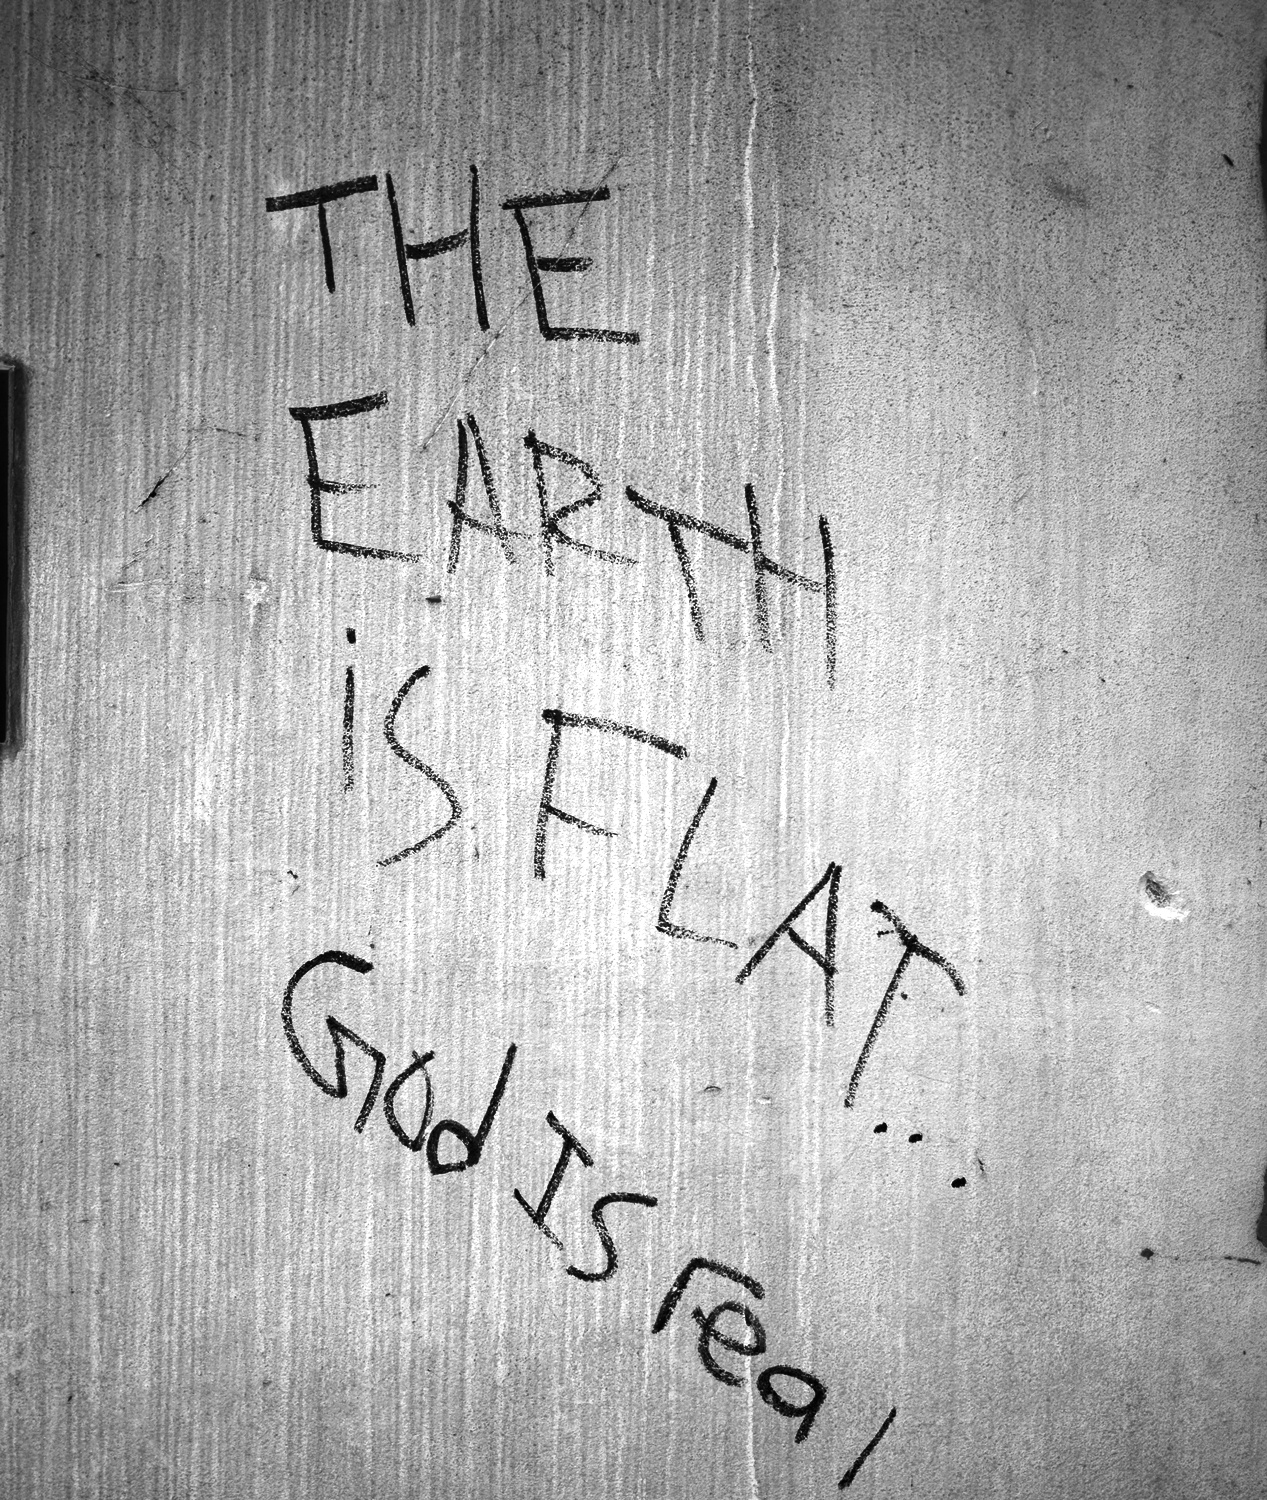 THE
EARTH
iS FLAT...
God IS real